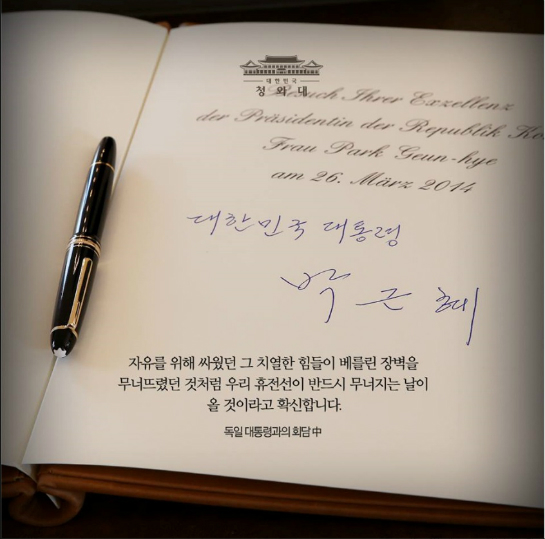 대한민국
청와대
Besuch Ihrer Exzellenz
der Präsidentin der Republik
Frau Park Geun-hye
am 26. März 2014
대한민국 대통령
박 근 혜
자유를 위해 싸웠던 그 치열한 힘들이 베를린 장벽을
무너뜨렸던 것처럼 우리 휴전선이 반드시 무너지는 날이
올 것이라고 확신합니다.
독일 대통령과의 회담 中